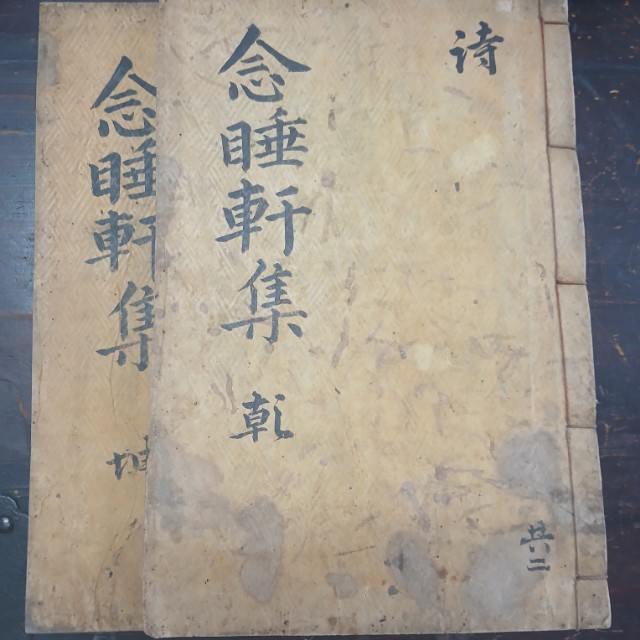 詩
共二
念睡軒集 乾
念睡軒集 坤